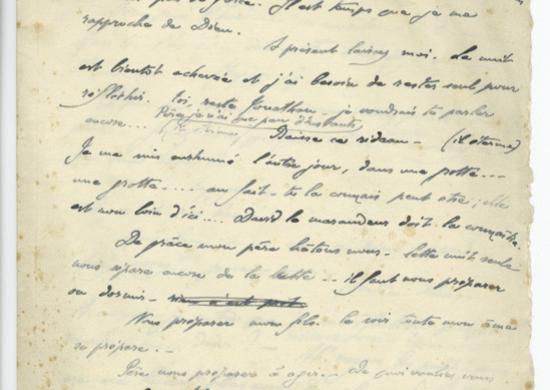 Il est temps que je me
rapproche de Dieu.
A présent laissez moi. La nuit
est bientôt achevée et j'ai besoin de rester seul pour
réfléchir. toi, reste Jonathan - je voudrais te parler
encore... Père je n'ai que peu d'instants
(Il éternue) Baisse ce rideau - (il éternue)
Je me suis enrhumé l'autre jour, dans une grotte...
une grotte.... au fait - tu la connais peut être ; elle
est non loin d'ici.... David le maraudeur doit la connaître.
De grâce mon père hâtons nous - cette nuit seule
nous sépare encore de la lutte... il faut nous préparer
ou dormir -
Nous préparer mon fils. Ce soir toute mon âme
se prépare. -
Père nous préparer à agir - de quoi voulez vous